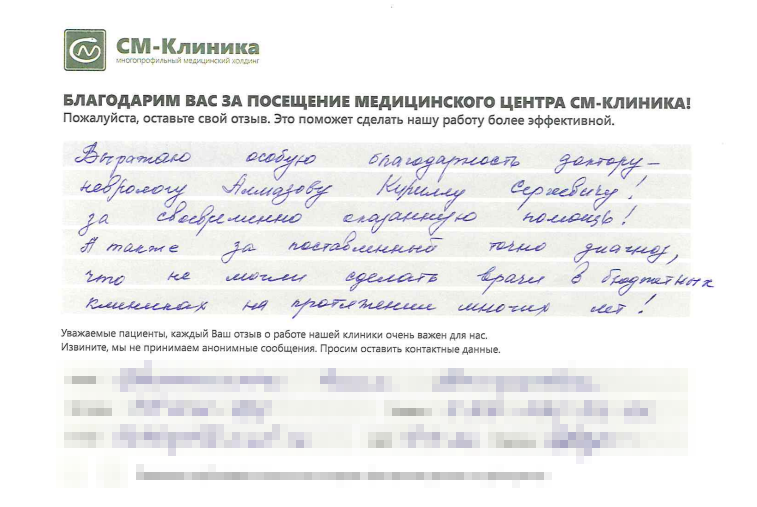 СМ-Клиника
многопрофильный медицинский холдинг
БЛАГОДАРИМ ВАС ЗА ПОСЕЩЕНИЕ МЕДИЦИНСКОГО ЦЕНТРА СМ-КЛИНИКА!
Пожалуйста, оставьте свой отзыв. Это поможет сделать нашу работу более эффективной.
Выражаю особую благодарность доктору –
неврологу Алмазову Кириллу Сергеевичу!
за своевременно оказанную помощь!
А также за поставленный точно диагноз,
что не могли сделать врачи в бюджетных
клиниках на протяжении многих лет!
Уважаемые пациенты, каждый Ваш отзыв о работе нашей клиники очень важен для нас.
Извините, мы не принимаем анонимные сообщения. Просим оставить контактные данные.